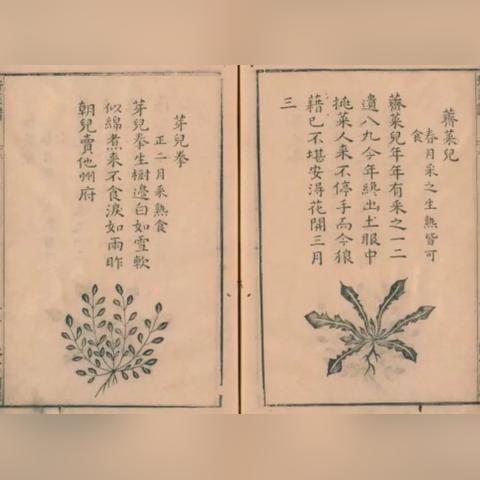 薺菜兒
春月采之生熟皆可
食
薺菜兒年年有采之一二
遺八九今年終出土眼中
挑菜人来不停手而今狼
藉已不堪安得花開三月
三
芽兒拳
正二月采熟食
芽兒拳生樹邊白如雪軟
似綿煮来不食淚如雨昨
朝兒賣他州府